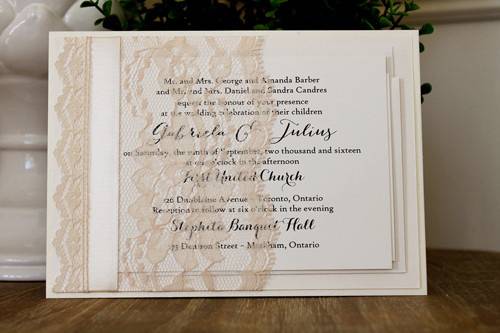 Mr. and Mrs. George and Amanda Barber
and Mr. and Mrs. Daniel and Sandra Candres
request the honour of your presence
at the wedding celebration of their children
Gabriela & Julius
on Saturday, the ninth of September, two thousand and sixteen
at one o'clock in the afternoon
First United Church
120 Danblaine Avenue – Toronto, Ontario
Reception to follow at six o'clock in the evening
Banquet Hall
Denison Street – Markham, Ontario